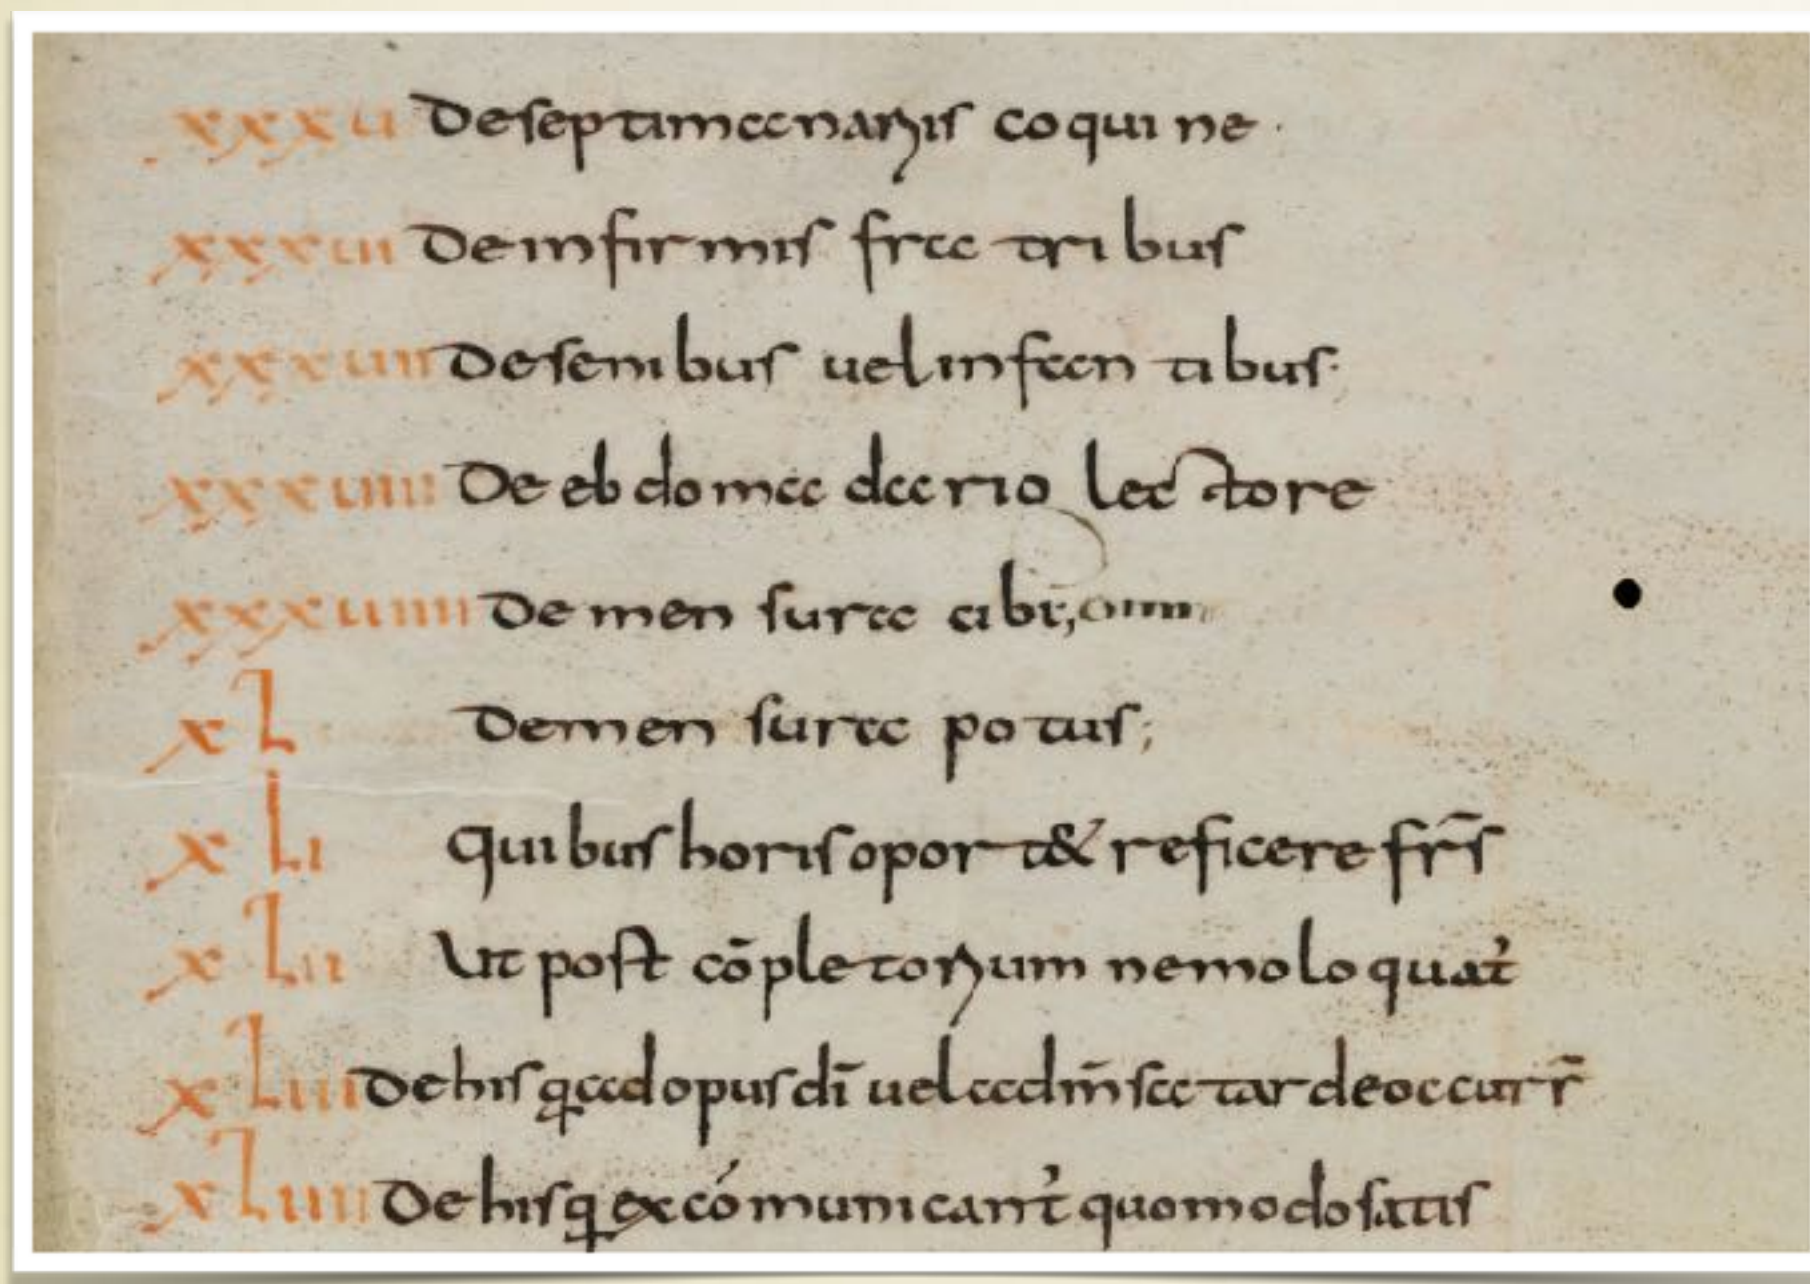 xxxu De septimanariis coquine·
xxxui De infirmis fratribus
xxxuii De senibus uel infantibus·
xxxuiii De ebdomadario lectore
xxxuiiii De mensura cibi;
xL De mensura potus;
xLi Quibus horis oport& reficere fr̄s
xLii Ut post cōpletorium nemo loquat̉
xLiii De his q̣ ad opus dī uel ad m̄sa tarde occurr̄
xLiiii De his q̣ excómunicant̉ quomodo satis